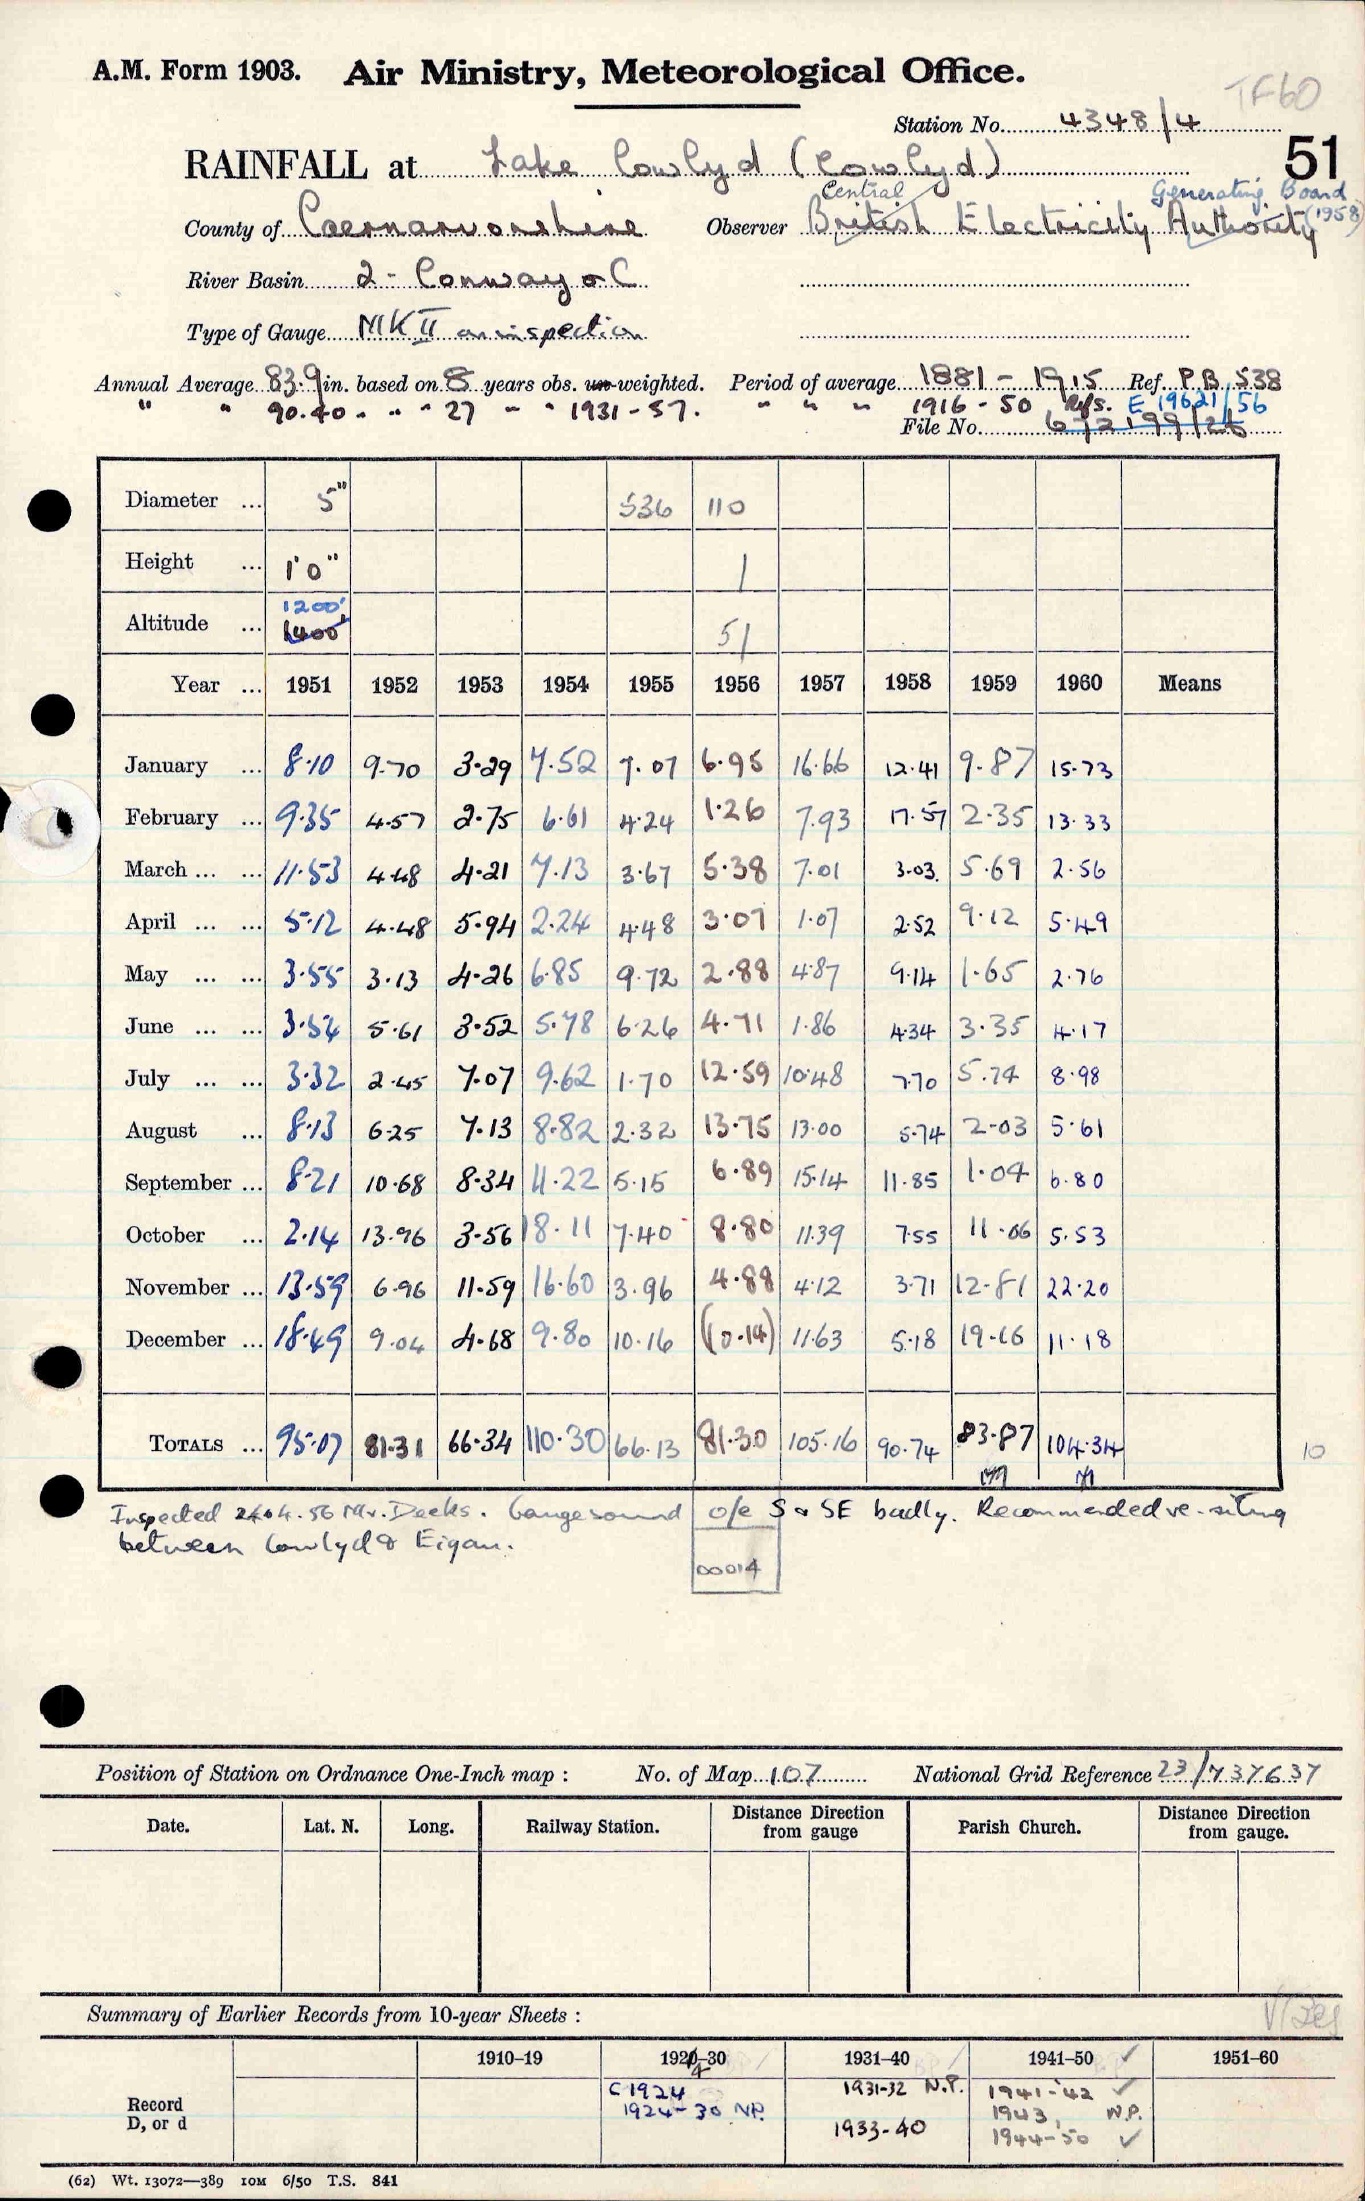 A.M. Form 1903. Air Ministry, Meteorological Office.
TF60
Station No. 4348/4
51
RAINFALL at Lake Cowlyd (Cowlyd)
Central Generating Board (1958)
County of Caernarvonshire Observer British Electricity Authority
River Basin 2 - Conway & C
Type of Gauge MK II on inspection
Annual Average 83.9 in. based on 8 years obs. un-weighted. Period of average 1881 - 1915 Ref. P.B. S38
" " 90.40 " " " 27 " " 1931-57. " " " 1916 - 50 Refs. E 19621/56
File No. 672199/26
Diameter ... 5" 536 110
Height ... 1'0" 1
Altitude ... 1200' 1400' 51
Year ... 1951 1952 1953 1954 1955 1956 1957 1958 1959 1960 Means
January ... 8.10 9.70 3.29 7.52 7.07 6.95 16.66 12.41 9.87 15.73
February ... 9.35 4.57 2.75 6.61 4.24 1.26 7.93 17.57 2.35 13.33
March ... ... 11.53 4.48 4.21 7.13 3.67 5.38 7.01 3.03 5.69 2.56
April ... ... 5.12 4.48 5.94 2.24 4.48 3.07 1.07 2.52 9.12 5.49
May ... ... 3.55 3.13 4.26 6.85 9.72 2.88 4.87 9.14 1.65 2.76
June ... ... 3.54 5.61 3.52 5.78 6.26 4.71 1.86 4.34 3.35 4.17
July ... ... 3.32 2.45 7.07 9.62 1.70 12.59 10.48 7.70 5.74 8.98
August ... 8.13 6.25 7.13 8.82 2.32 13.75 13.00 5.74 2.03 5.61
September ... 8.21 10.68 8.34 11.22 5.15 6.89 15.14 11.85 1.04 6.80
October ... 2.14 13.96 3.56 18.11 7.40 8.80 11.39 7.55 11.06 5.53
November ... 13.59 6.96 11.59 16.60 3.96 4.88 4.12 3.71 12.81 22.20
December ... 18.49 9.04 4.68 9.80 10.16 (10.14) 11.63 5.18 19.16 11.18
TOTALS ... 95.07 81.31 66.34 110.30 66.13 81.30 105.16 90.74 83.87 104.34
10
Inspected 24.4.56 Mr. Deeks. Gauge sound o/e S & SE badly. Recommended re-siting
between Cowlyd & Eigau.
00014
Position of Station on Ordnance One-Inch map : No. of Map 107 National Grid Reference 23/737637
Date. Lat. N. Long. Railway Station. Distance Direction from gauge Parish Church. Distance Direction from gauge.
Summary of Earlier Records from 10-year Sheets :
1910-19 1920-30 1931-40 1941-50 ✓ 1951-60
4
Record
D, or d
C 1924
1924-30 N.P.
1931-32 N.P.
1933-40
1941-42 ✓
1943, N.P.
1944-50 ✓
(62) Wt. 13072—389 10M 6/50 T.S. 841